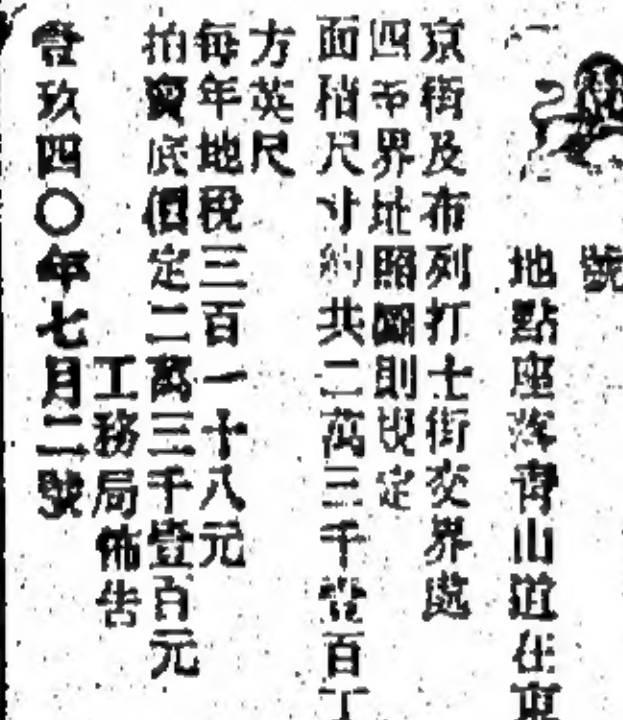 號
地點座落青山道在東
京街及布列打士街交界處
四至界址照圖則規定
面積尺寸約共二萬三千壹百丁
方英尺
每年地稅三百一十八元
拍賣底價定二萬三千壹百元
工務局佈告
壹玖四〇年七月二號